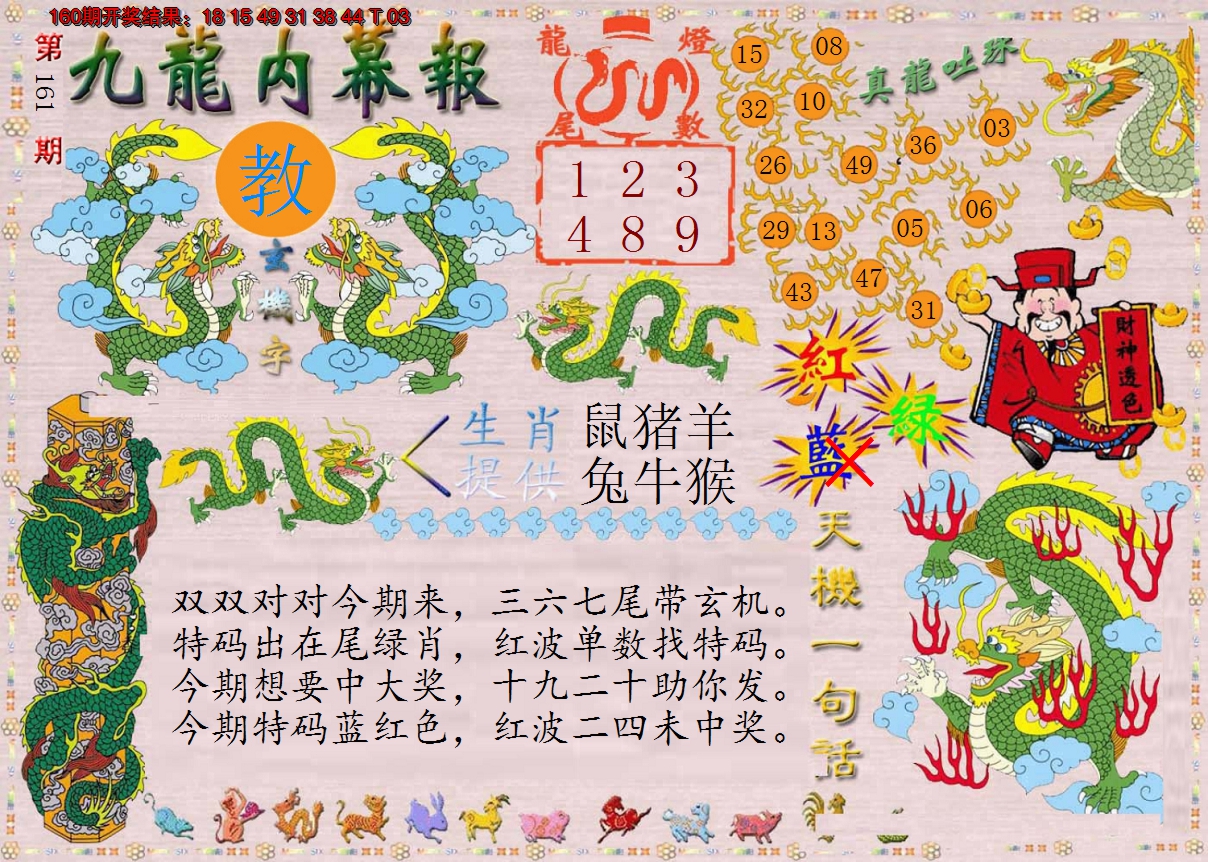 160期开奖结果：18 15 49 31 38 44 T 03
第161期
九龍内幕報
教
玄機字
龍燈尾數
1 2 3
4 8 9
真龍吐珠
15 08
32 10
36 03
26 49
06
29 13 05
43 47
31
財神透色
紅
绿
藍
生肖提供
鼠猪羊
兔牛猴
天機一句话
双双对对今期来，三六七尾带玄机。
特码出在尾绿肖，红波单数找特码。
今期想要中大奖，十九二十助你发。
今期特码蓝红色，红波二四未中奖。